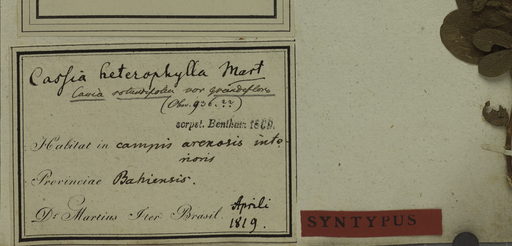 Cassia heterophylla Mart
Cassia rotundifolia var grandiflora
(Obs. 936. ??)
scrpst. Bentham 1869.
Habitat in campis arenosis inte-
rioris
Provinciae Bahiensis.
Dr Martius Iter Brasil. Aprili
1819.
SYNTYPUS